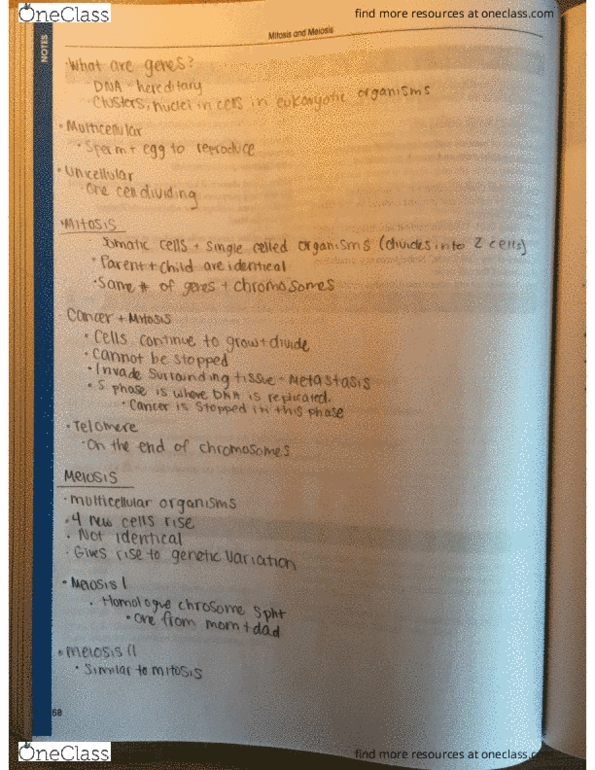 OneClass
find more resources at oneclass.com
NOTES
Mitosis and Meiosis
· What are genes?
· DNA - hereditary
· Clusters, nuclei in cells in eukaryotic organisms
· Multicellular
· Sperm + egg to reproduce
· Unicellular
· One cell dividing
· MITOSIS
· Somatic cells + single celled organisms (divides into 2 cells)
· Parent + Child are identical
· Same # of genes + chromosomes
· Cancer + Mitosis
· Cells continue to grow + divide
· Cannot be stopped
· Invade surrounding tissue - Metastasis
· S phase is where DNA is replicated.
· Cancer is stopped in this phase
· Telomere
· On the end of chromosomes
MEIOSIS
· multicellular organisms
· 4 new cells rise
· Not identical
· Gives rise to genetic variation
· Meiosis I
· Homologue chrosome split
· One from mom + dad
· meiosis II
· Similar to mitosis
68
OneClass
find more resources at oneclass.com